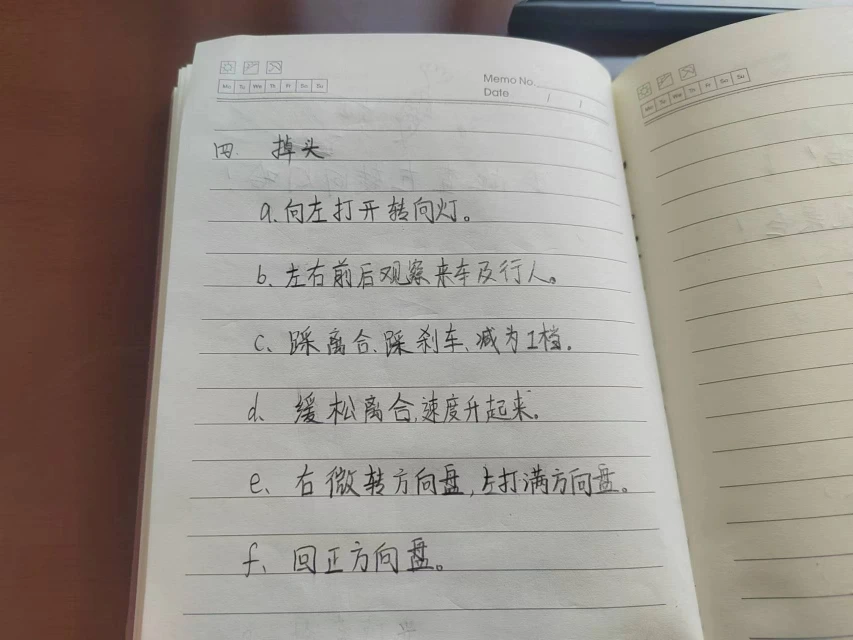 Memo No.
Mo Tu We Th Fr Sa Su
Date / /
四. 掉头
a.向左打开转向灯。
b、左右前后观察来车及行人。
c、踩离合、踩刹车、减为1档.
d、缓松离合,速度升起来。
e、右微转方向盘,左打满方向盘。
f、回正方向盘。
Mo Tu We Th Fr Sa Su